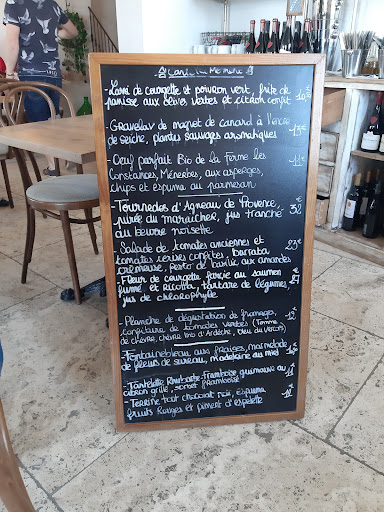 - Carri de courgette et poivron vert, frite de
panisse aux olives vertes et citron confit 10€
- Gravelax de magret de canard à l'encre
de seiche, plantes sauvages aromatiques 13€
- Oeuf parfait Bio de la Ferme les
Constances, Ménerbes, aux asperges, 11€
chips et espuma au parmesan
- Tournedos d'Agneau de Provence,
purée du maraîcher, jus tranché 32
au beurre noisette
- Salade de tomates anciennes et 23€
tomates cerises confites, burrata
crémeuse, pesto de basilic aux amandes
- Fleur de courgette farcie au saumon
fumé et ricotta, tartare de légumes,
jus de chlorophylle
- Planche de dégustation de fromages,
confiture de tomates vertes (Tomme
de chèvre, chèvre bio d'Ardèche, bleu du Vercors)
- Fontainebleau aux fraises, marmelade
de fleurs de sureau, madeleine au miel
- Tartelette Rhubarbe-Framboise, guimauve au
citron grillé, sorbet framboise
- Terrine tout chocolat noir, espuma
fruits Rouges et piment d'espelette